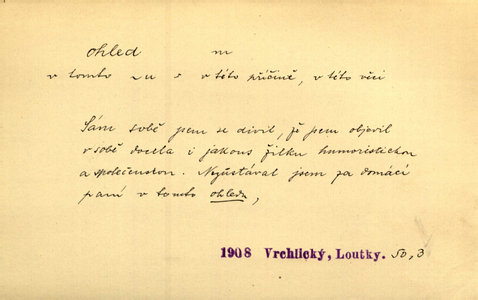 ohled m
v tomto ~u s v této příčině, v této věci
Sám sobě jsem se divil, že jsem objevil
v sobě docela i jakous žilku humoristickou
a společenskou. Nezůstával jsem za domácí
paní v tomto ohledu,
1908 Vrchlický, Loutky. 50, 3